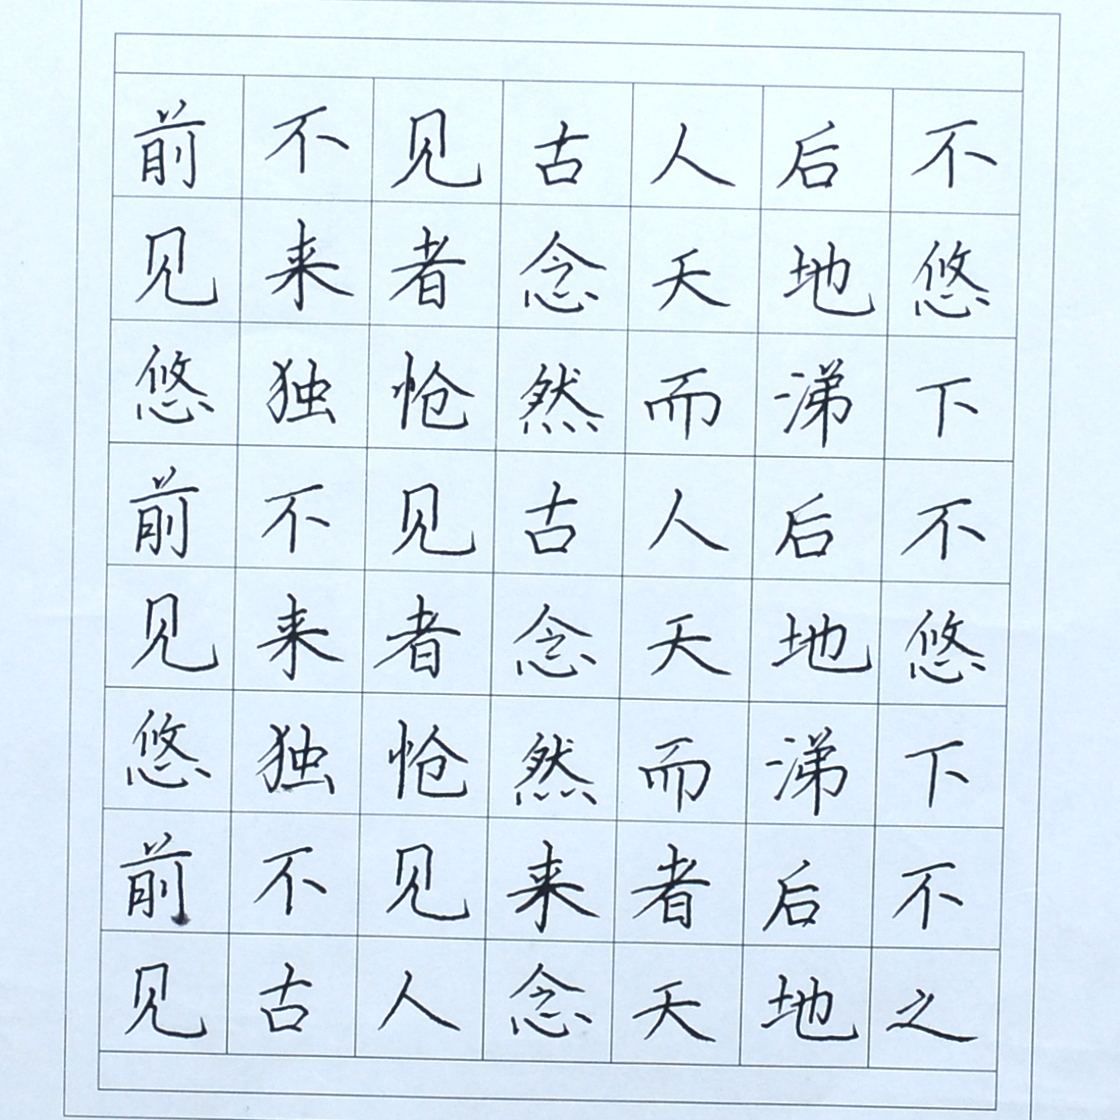 前不见古人后不
见来者念天地悠
悠独怆然而涕下
前不见古人后不
见来者念天地悠
悠独怆然而涕下
前不见来者后不
见古人念天地之